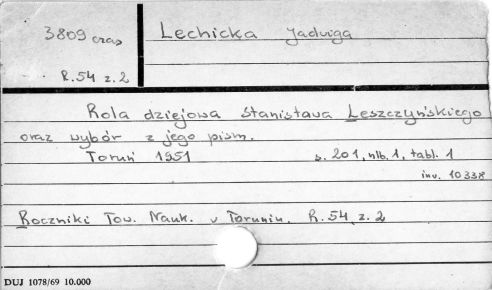 3809 czas
R.54 z.2
Lechicka Jadwiga
Rola dziejowa Stanisława Leszczyńskiego
oraz wybór z jego pism.
Toruń 1951 s. 201, nlb. 1, tabl. 1
inw. 10338
Roczniki Tow. Nauk. w Toruniu. R.54 z.2
DUJ 1078/69 10.000